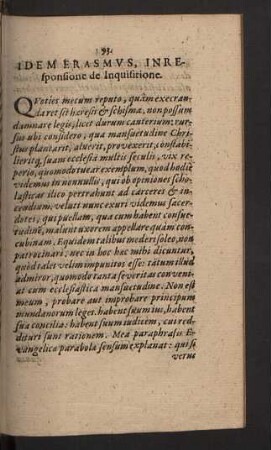 93.
IDEM ERASMVS, IN RE-
sponsione de Inquisitione.
QVoties mecum reputo, quàm execran-
da res sit heresis & schisma, non possum
damnare legis, licet durum cauterium: rur-
sus ubi considero, qua mansuetudine Chri-
stus plantarit, aluerit, provexerit, constabi-
lieritq, suam ecclesiã multis seculis, vix re-
perio, quomodo tuear exemplum, quod hodie
videmus in nonnullis, qui ob opiniones scho-
lasticas ilico pertrahunt ad carceres & in-
cendium. veluti nunc exuri videmus sacer-
dotes, qui puellam, qua cum habent consue-
tudinẽ, malunt uxorem appellare quàm con-
cubinam. Equidem talibus mederi soleo, non
patrocinari: nec in hoc hæc mihi dicuntur,
quòd tales velim impunitos esse: tatum illud
admiror, quomodo tanta severitas conveni-
at cum ecclesiastica mansuetudine. Non est
meum, probare aut improbare principum
mundanorum leges. habent suum ius, habent
sua concilia: habent suum iudicem, cui red-
dituri sunt rationem. Mea paraphrasis E-
vangelica parabolæ sensum explanat: qui si
verus